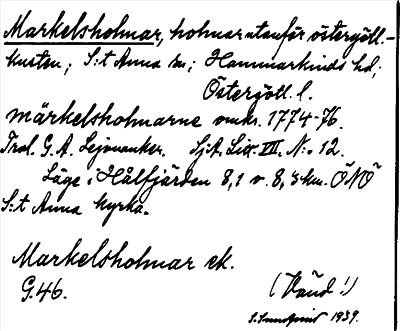 Markelsholmar, holmar utanför östergötl.-
kusten; S:t Anna sn; Hammarkinds hd;
Östergötl. l.
märkelsholmarne omkr. 1774-76.
Trol. G. A. Leijonanker. Sj:A. Litt. VII. N:o 12.
Läge i Hålfjärden 8,1 v. 8,3 km. ÖNÖ
S:t Anna kyrka.
Markelsholmar ek.
G.46.
(Vänd!)
1939.